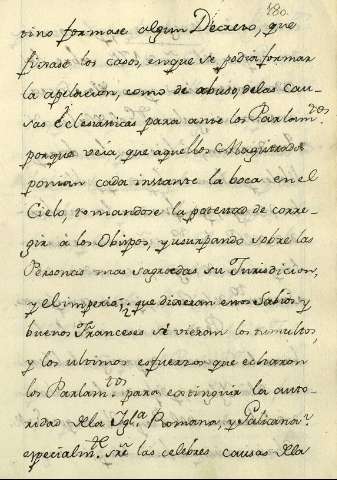 180.
vino formase algun Decreto, que
fixase los casos, en que se podia formar
la apelacion, como de abuso, delas cau-
sas Eclesiásticas para ante los Parlam.tos
porque veía, que aquellos Magistrados
ponian cada instante la boca en el
Cielo, tomandose la potestad de corre-
gir á los Obispos, y usurpando sobre las
Personas mas sagradas su Jurisdicion,
y el imperio; que dixeran esos Sabios y
buenos Franceses si vieran los tumultos,
y los ultimos esfuerzos que echaron
los Parlam.tos para extinguir la auto-
ridad dela Igl.a Romana, y Galicana
especialm.te s.re las celebres causas dela